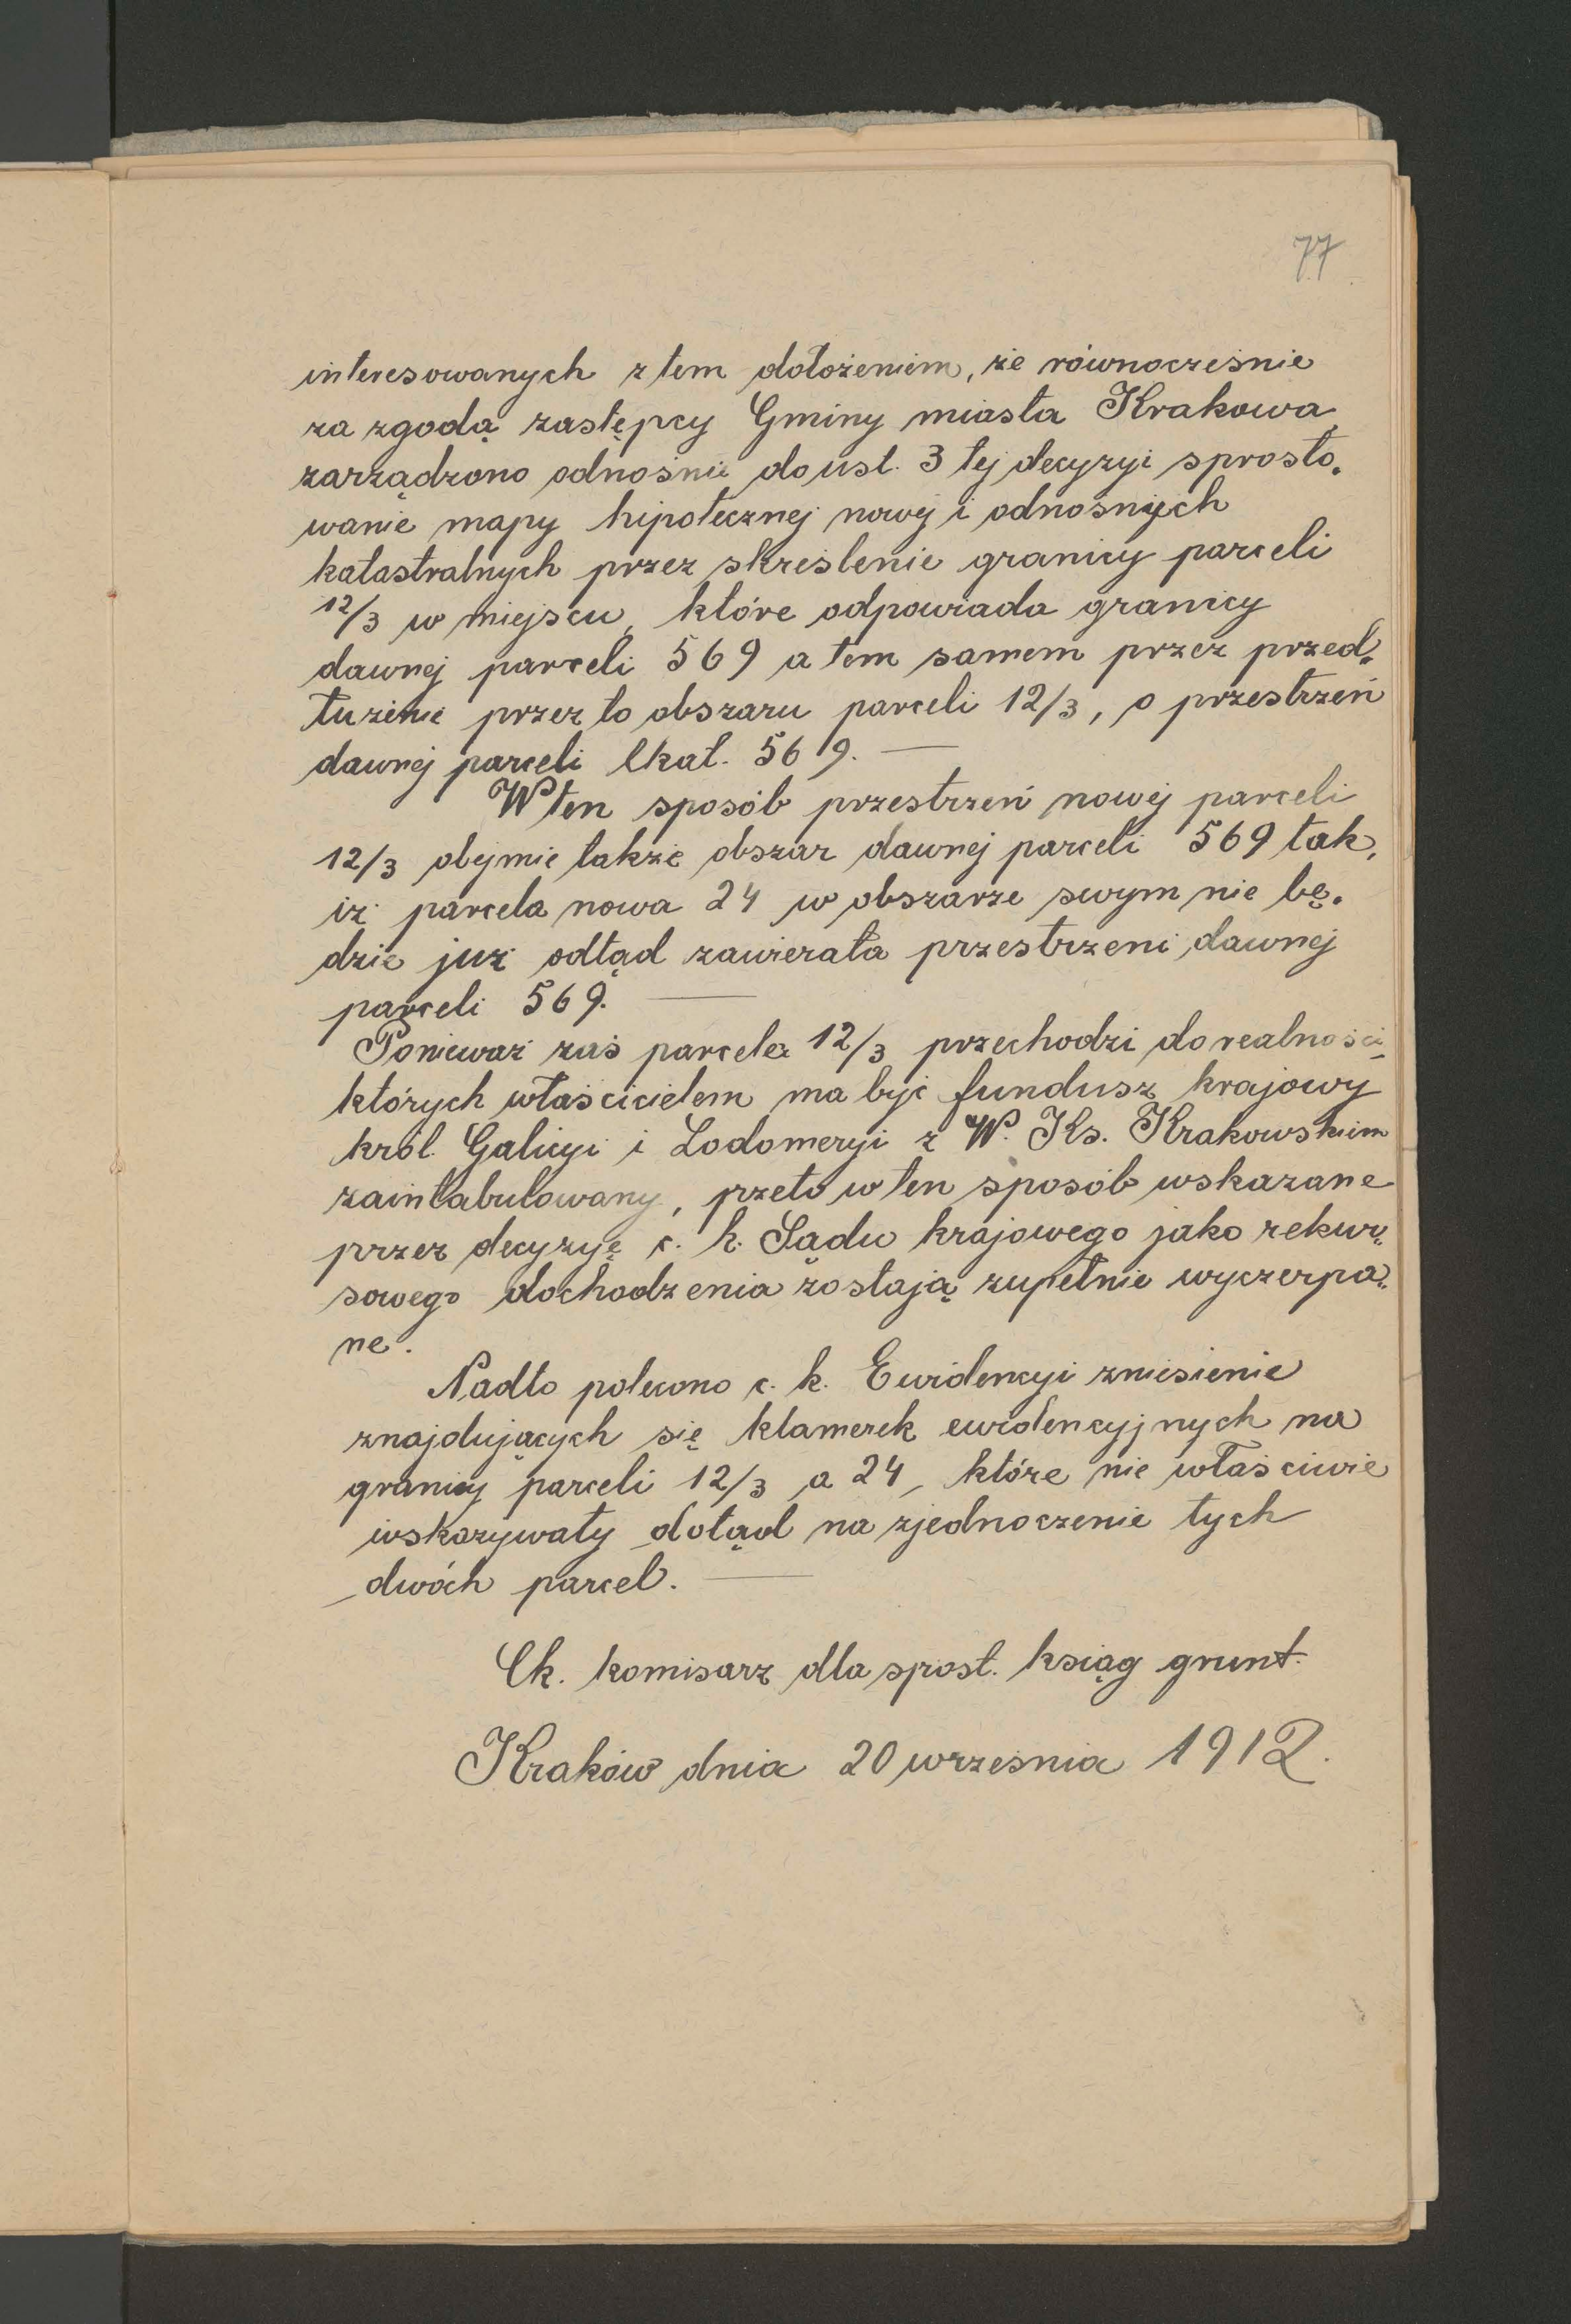 77
interesowanych z tem dołożeniem, że równocześnie
za zgodą zastępcy Gminy miasta Krakowa
zarządzono odnośnie do ust. 3 tej decyzyi sprosto„
wanie mapy hipotecznej nowej i odnośnych
katastralnych przez skreślenie granicy parceli
12/3 w miejscu, które odpowiada granicy
dawnej parceli 569 a tem samem przez przed„
łużenie przez to obszaru parceli 12/3, o przestrzeń
dawnej parceli lkat. 569. —
W ten sposób przestrzeń nowej parceli
12/3 obejmie także obszar dawnej parceli 569 tak,
iż parcela nowa 24 w obszarze swym nie bę„
dzie już odtąd zawierała przestrzeni dawnej
parceli 569. —
Ponieważ zaś parcela 12/3 przechodzi do realności,
których właścicielem ma być fundusz krajowy
król. Galicyi i Lodomeryi z W. Ks. Krakowskiem
zaintabulowany, przeto w ten sposób wskazane
przez decyzyę c. k. Sądu krajowego jako rekur„
sowego dochodzenia zostają zupełnie wyczerpa„
ne.
Nadto polecono c. k. Ewidencyi zniesienie
znajdujących się klamerek ewidencyjnych na
granicy parceli 12/3 a 24, które nie właściwie
wskazywały dotąd na zjednoczenie tych
dwóch parcel. —
Ck. komisarz dla sprost. ksiąg grunt.
Kraków dnia 20 września 1912.